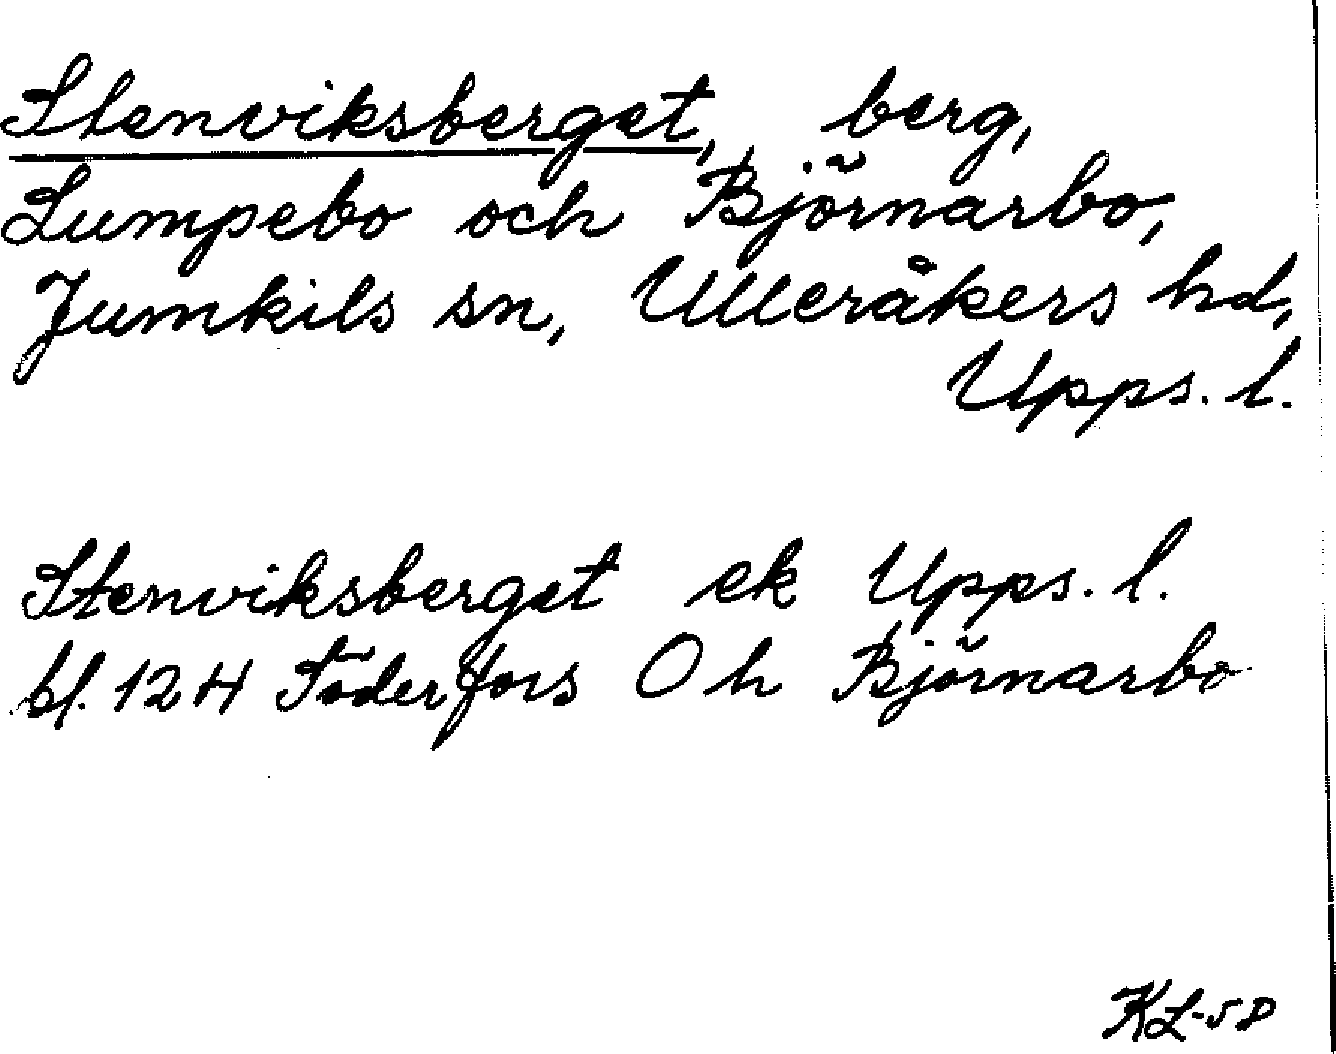 Stenviksberget, berg,
Lumpebo och Björnarbo,
Jumkils sn, Ulleråkers hd,
Upps. l.
Stenviksberget ek Upps. l.
bl. 12 H Söderfors O h Björnarbo
KL-SD